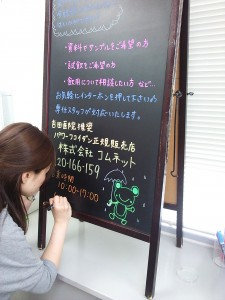 ・資料やサンプルをご希望の方
・試飲をご希望の方
・飲用について相談したい方 など…
お気軽にインターホンを押して下さい♪
専任スタッフが対応いたします。
吉田医院推奨
パワーフコイダン正規販売店
株式会社 コムネット
120-166-159
営業時間
10:00-17:00